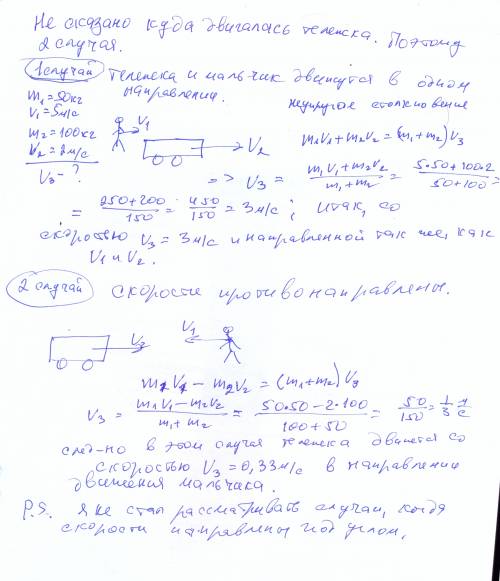 Не сказано куда двигалась тележка. Поэтому
2 случая.
1 случай тележка и мальчик движутся в одном
направлении.
m₁=50кг
V₁=5м/с
m₂=100кг
V₂=2м/с
V₃-?
V₁
V₂
неупругое столкновение
m₁V₁+m₂V₂=(m₁+m₂)V₃
=> V₃ = (m₁V₁+m₂V₂)/(m₁+m₂) = (5·50+100·2)/(50+100) =
= (250+200)/150 = 450/150 = 3м/с; итак, со
скоростью V₃=3м/с и направленной так же, как
V₁ и V₂.
2 случай скорости противонаправлены.
V₂
V₁
m₁V₁-m₂V₂=(m₁+m₂)V₃
V₃ = (m₁V₁-m₂V₂)/(m₁+m₂) = (50·50-2·100)/(100+50) = 50/150 = 1/3 м/с
след-но в этом случае тележка движется со
скоростью V₃=0,33м/с в направление
движения мальчика.
P.S. Я не стал рассматривать случаи, когда
скорости направлены под углом.